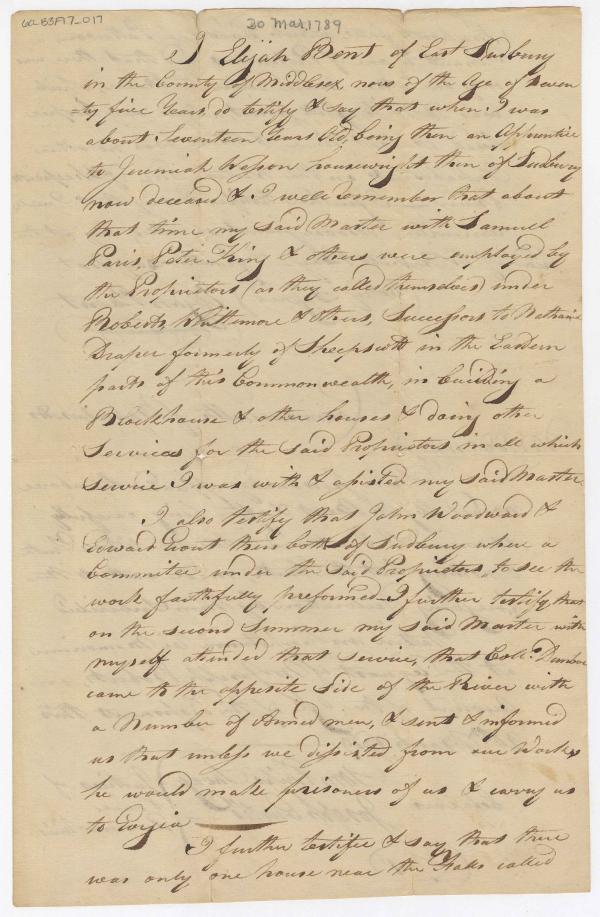 GCB3F17_017
30 Mar, 1789
I Elijah Bent of East Sudbury
in the County of Middlesex, now of the Age of Seven
=ty five Years, do testify & say that when I was
about Seventeen Years Old, being then an Apprentice
to Jeremiah Wesson housewright then of Sudbury
now deceased & I well remember that about
that time my said Master with Samuel
Paris, Peter King & others were employed by
the Proprietors (as they called themselves) under
Roberts, Whittemore & others, Successors to Nathan
Draper formerly of Sheepscott in the Eastern
parts of this Commonwealth, in building a
Brockhouse & other houses & doing other
Services for the said Proprietors in all which
service I was with & assisted my said Master
I also testify that John Woodward &
Edward then both of Sudbury where a
Committee under the said Proprietors, to see the
work faithfully preformed - I further testify, that
on the second Summer my said Master with
myself atended that service, that Collo. Dunbar
came to the opposite Side of the River with
a Number of Armed men, & sent & informed
us that unless we dissisted from our Works
he would make prisoners of us & carry us
to
I further testifie & say, that there
was only one house near the Falls called